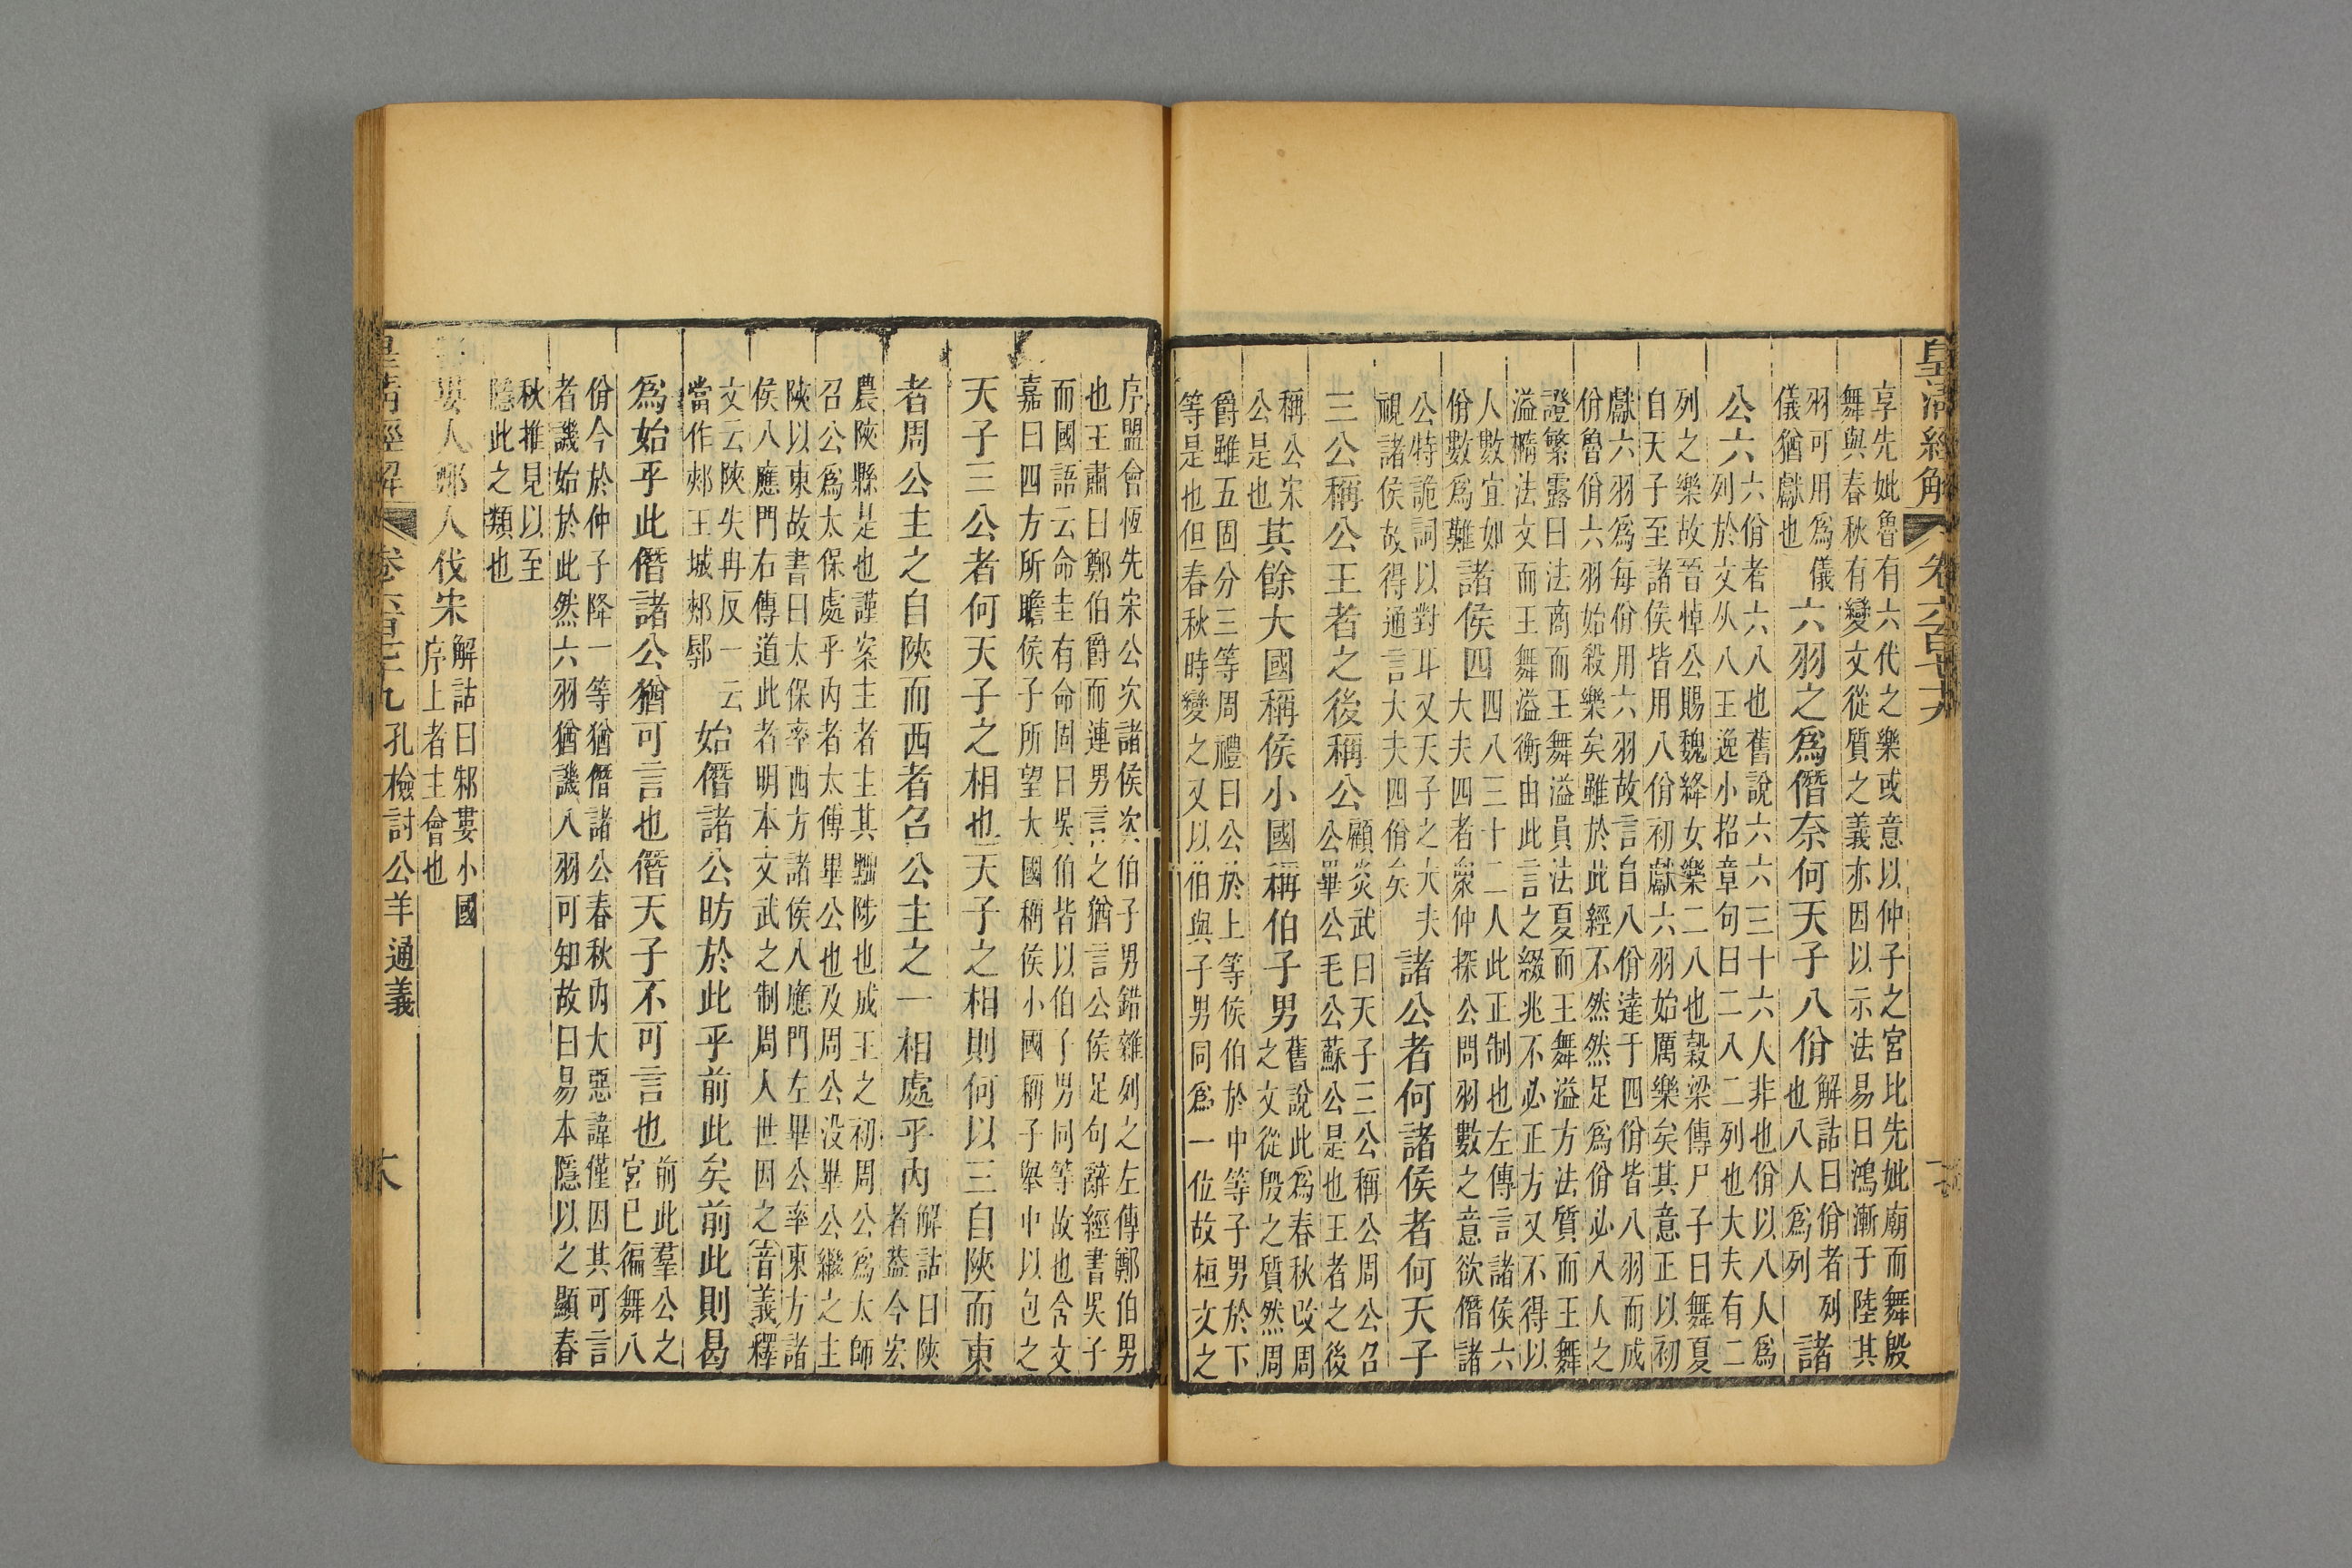 皇清經解 卷六百七十九
享先妣魯有六代之樂或意以仲子之宮比先妣廟而舞殷
舞與春秋有變文從質之義亦因以示法易曰鴻漸于陸其
羽可用爲儀
儀猶獻也
六羽之爲僭奈何天子八佾
解詁曰佾者列
也八人爲列
諸
公六
六佾者六八也舊說六六三十六人非也佾以八人爲
列於文从八王逸小招章句曰二八二列也大夫有二
列之樂故晉悼公賜魏絳女樂二八也穀梁傳尸子曰舞夏
自天子至諸侯皆用八佾初獻六羽始厲樂矣其意正以初
獻六羽爲每佾用六羽故言自八佾達于四佾皆八羽而成
佾魯佾六羽始殺樂矣雖於此經不然然足爲佾必八人之
證繁露曰法商而王舞溢員法夏而王舞溢方法質而王舞
溢橢法文而王舞溢衡由此言之綴兆不必正方又不得以
人數宜如
佾數爲難
諸侯四
四八三十二人此正制也左傳言諸侯六
大夫四者衆仲探公問羽數之意欲僭諸
公特詭詞以對耳又天子之大夫
視諸侯故得通言大夫四佾矣
諸公者何諸侯者何天子
三公稱公王者之後稱公
顧炎武曰天子三公稱公周公召
公畢公毛公蘇公是也王者之後
稱公宋
公是也
其餘大國稱侯小國稱伯子男
舊說此爲春秋改周
之文從殷之質然周
爵雖五固分三等周禮曰公於上等侯伯於中等子男於下
等是也但春秋時變之又以伯與子男同爲一位故桓文之
序盟會恆先宋公次諸侯次伯子男錯雜列之左傳鄭伯男
也王肅曰鄭伯爵而連男言之猶言公侯足句辭經書吳子
而國語云命圭有命固曰吳伯皆以伯子男同等故也舍文
嘉曰四方所瞻侯子所望大國稱侯小國稱子舉中以包之
天子三公者何天子之相也天子之相則何以三自陝而東
者周公主之自陝而西者召公主之一相處乎內
解詁曰陝
者蓋今宏
農陝縣是也謹案主者主其黜陟也成王之初周公爲太師
召公爲太保處乎內者太傅畢公也及周公没畢公繼之主
陝以東故書曰太保率西方諸侯入應門左畢公率東方諸
侯入應門右傳道此者明本文武之制周人世因之音義釋
文云陝失冉反一云
當作郟王城郟鄏
始僭諸公昉於此乎前此矣前此則曷
爲始乎此僭諸公猶可言也僭天子不可言也
前此羣公之
宮已徧舞八
佾今於仲子降一等猶僭諸公春秋內大惡諱僅因其可言
者譏始於此然六羽猶譏八羽可知故曰易本隱以之顯春
秋推見以至
隱此之類也
邾婁人鄭人伐宋
解詁曰邾婁小國
序上者主會也
皇清經解 卷六百七十九 孔檢討公羊通義